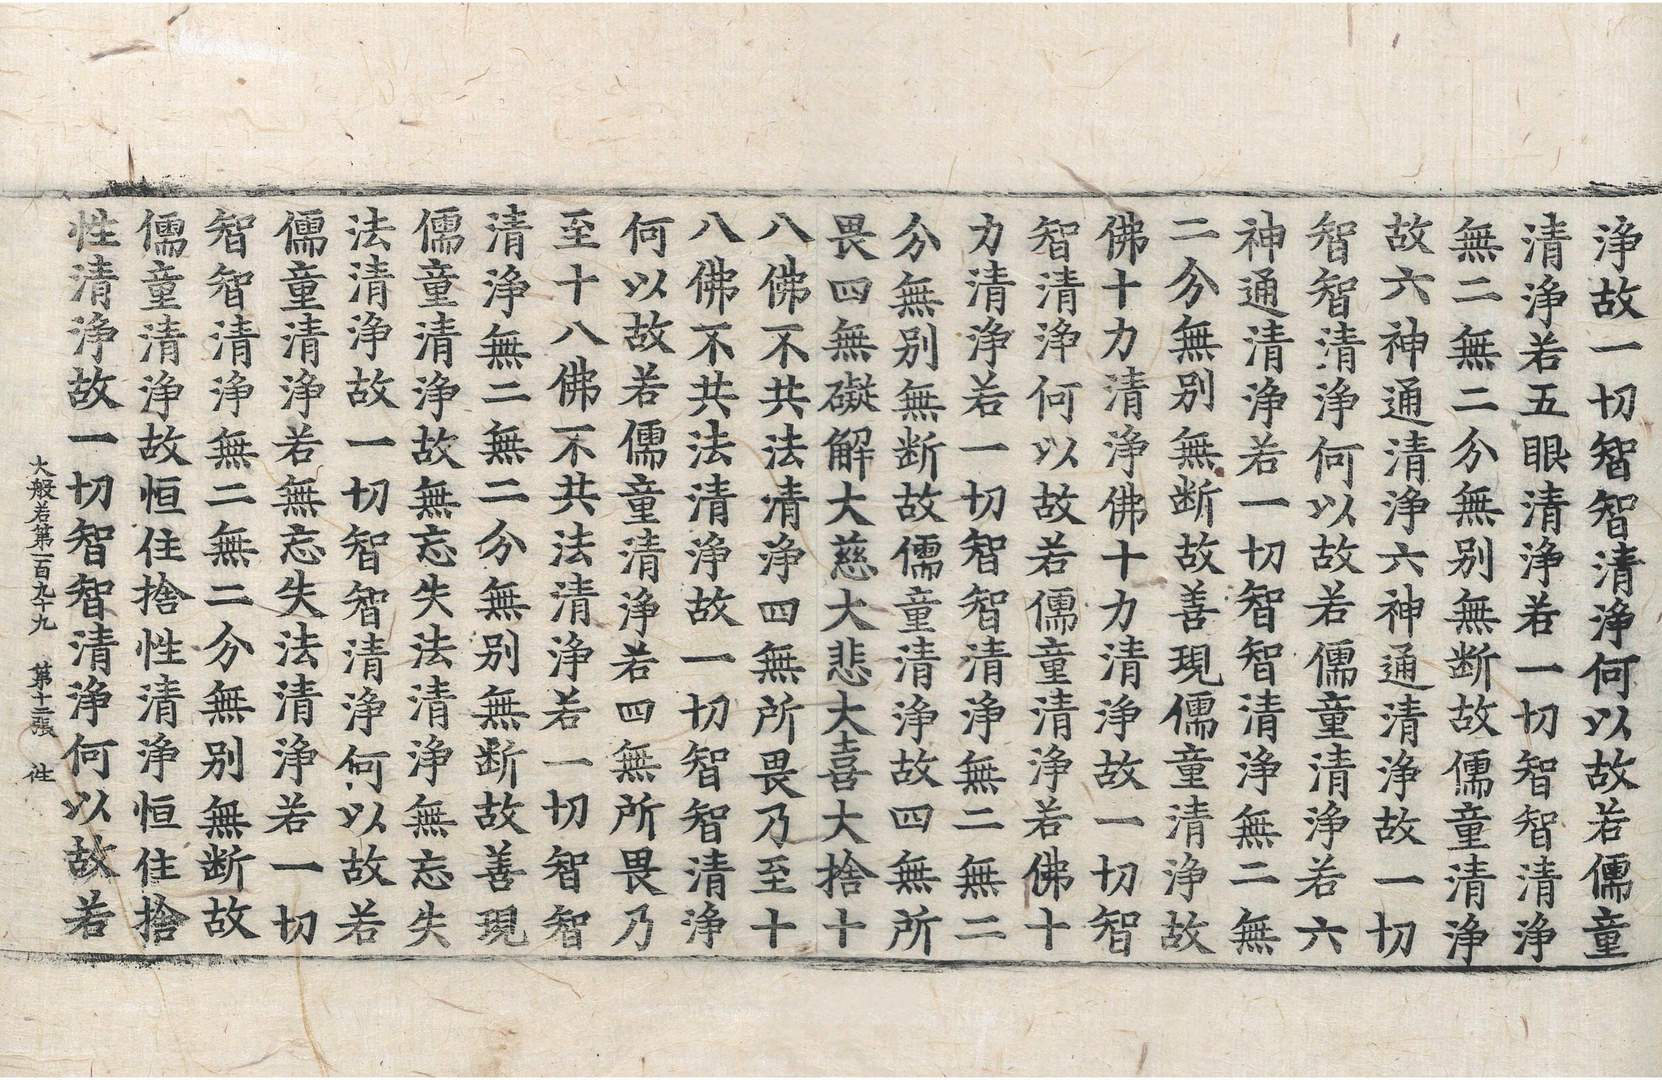 浄故一切智智清浄何以故若儒童
清浄若五眼清浄若一切智智清浄
無二無二分無别無断故儒童清浄
故六神通清浄六神通清浄故一切
智智清浄何以故若儒童清浄若六
神通清浄若一切智智清浄無二無
二分無别無断故善現儒童清浄故
佛十力清浄佛十力清浄故一切智
智清浄何以故若儒童清浄若佛十
力清浄若一切智智清浄無二無二
分無别無断故儒童清浄故四無所
畏四無礙解大慈大悲大喜大捨十
八佛不共法清浄四無所畏乃至十
八佛不共法清浄故一切智智清浄
何以故若儒童清浄若四無所畏乃
至十八佛不共法清浄若一切智智
清浄無二無二分無别無断故善現
儒童清浄故無忘失法清浄無忘失
法清浄故一切智智清浄何以故若
儒童清浄若無忘失法清浄若一切
智智清浄無二無二分無别無断故
儒童清浄故恒住捨性清浄恒住捨
性清浄故一切智智清浄何以故若
大般若第一百九十九 第十二張